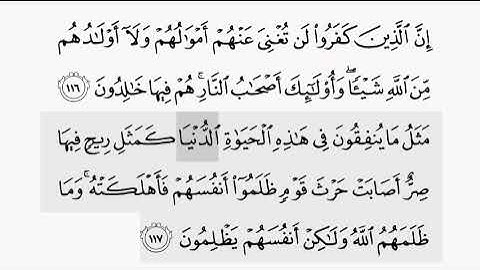 إِنَّ ٱلَّذِينَ كَفَرُوا۟ لَن تُغْنِىَ عَنْهُمْ أَمْوَٰلُهُمْ وَلَآ أَوْلَـٰدُهُم
مِّنَ ٱللَّهِ شَيْـًٔا ۖ وَأُو۟لَـٰٓئِكَ أَصْحَـٰبُ ٱلنَّارِ ۚ هُمْ فِيهَا خَـٰلِدُونَ ١١٦
مَثَلُ مَا يُنفِقُونَ فِى هَـٰذِهِ ٱلْحَيَوٰةِ ٱلدُّنْيَا كَمَثَلِ رِيحٍ فِيهَا
صِرٌّ أَصَابَتْ حَرْثَ قَوْمٍ ظَلَمُوٓا۟ أَنفُسَهُمْ فَأَهْلَكَتْهُ ۚ وَمَا
ظَلَمَهُمُ ٱللَّهُ وَلَـٰكِنْ أَنفُسَهُمْ يَظْلِمُونَ ١١٧